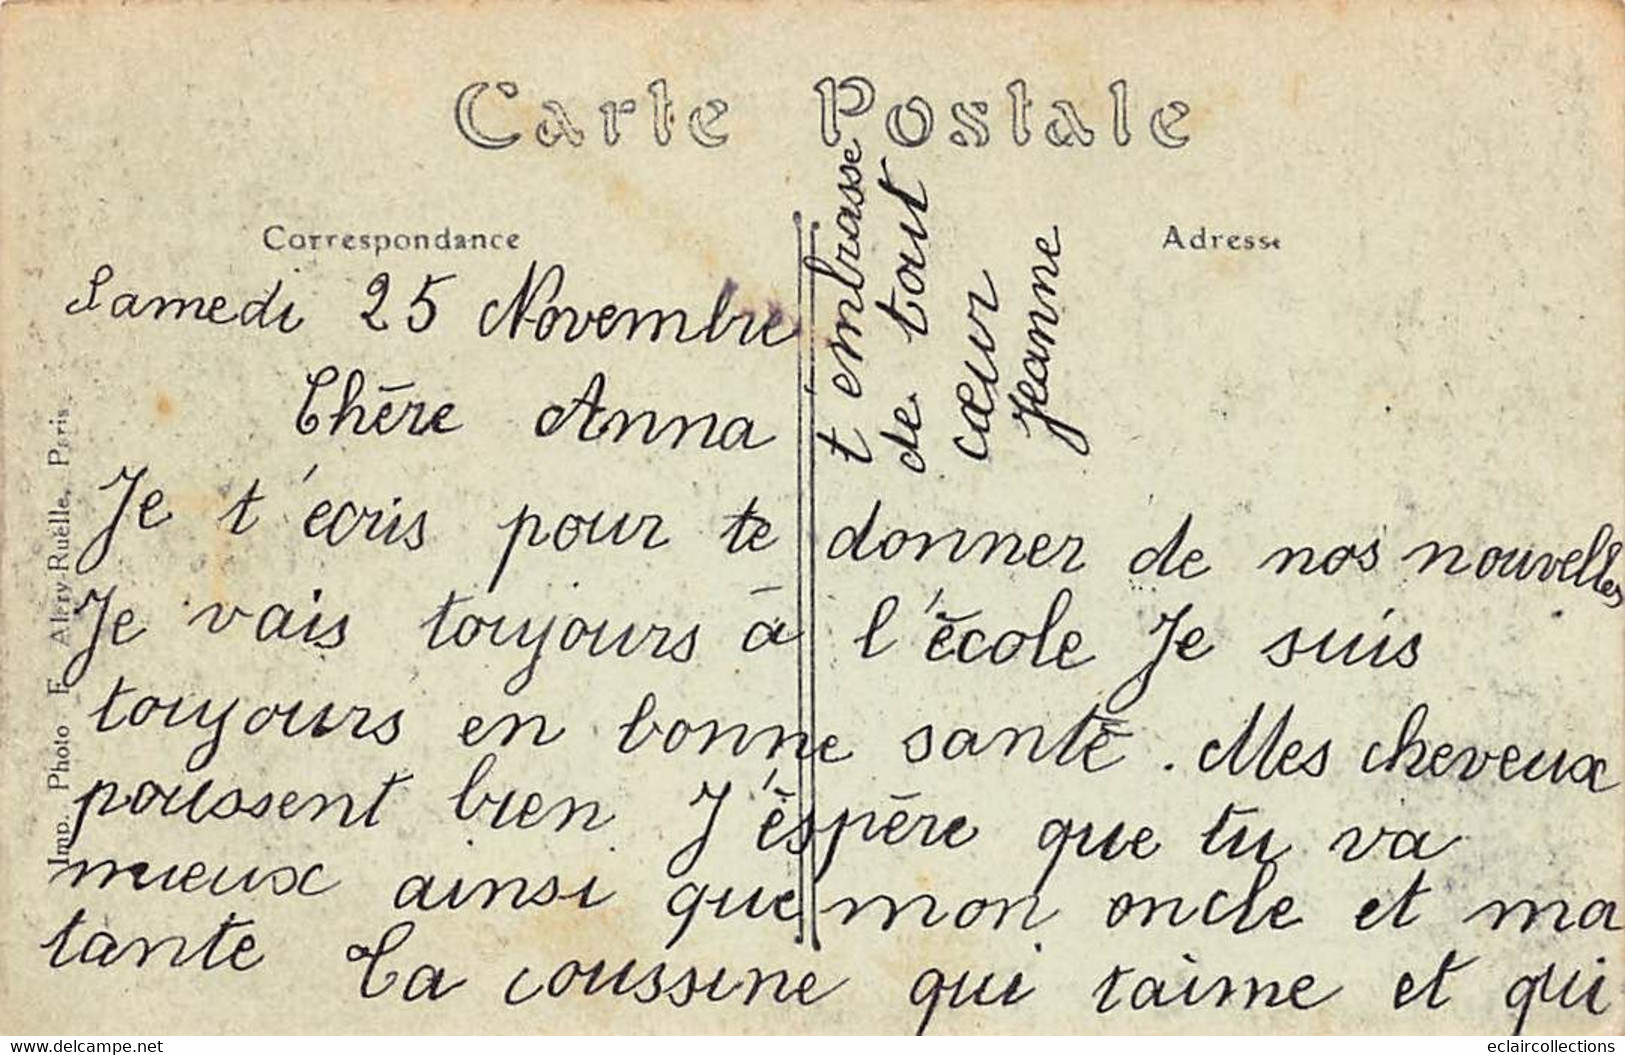 Carte Postale
Correspondance
Adresse
Samedi 25 Novembre
Chère Anna
Je t'écris pour te donner de nos nouvelles
Je vais toujours à l'école Je suis
toujours en bonne santé. Mes cheveux
poussent bien J'éspère que tu va
mieux ainsi que mon oncle et ma
tante Ta coussine qui t'aime et qui
t embrasse
de tout
cœur
Jeanne
Imp. Photo F. Aléry-Ruëlle, Paris.
www.delcampe.net
eclaircollections